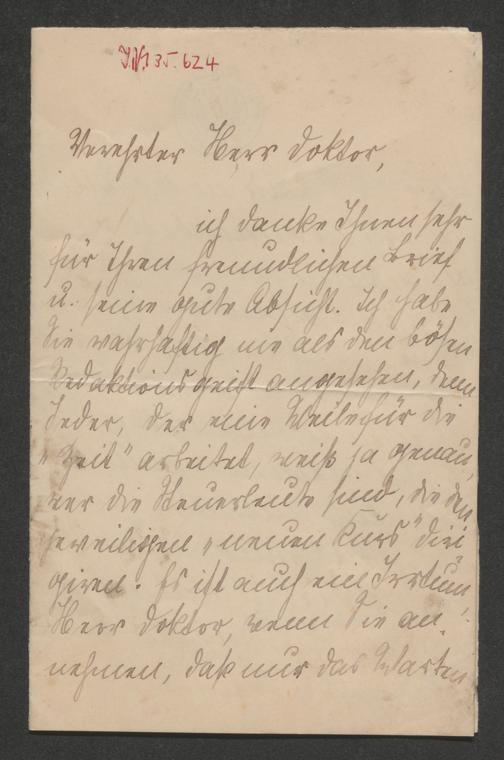 I.N. 135.624
Verehrter Herr Doktor,
ich danke Ihnen sehr
für Ihren freundlichen Brief
u. seine gute Absicht. Ich habe
Sie wahrhaftig nie als den bösen
Redaktionsgeist angesehen, denn
Jeder, der eine Weile für die
„Zeit" arbeitet, weiß ja genau,
wer die Steuerleute sind, die den
jeweiligen „neuen Kurs" diri
giren. Es ist auch ein Irrtum,
Herr Doktor, wenn Sie an-
nehmen, daß nur das Warten